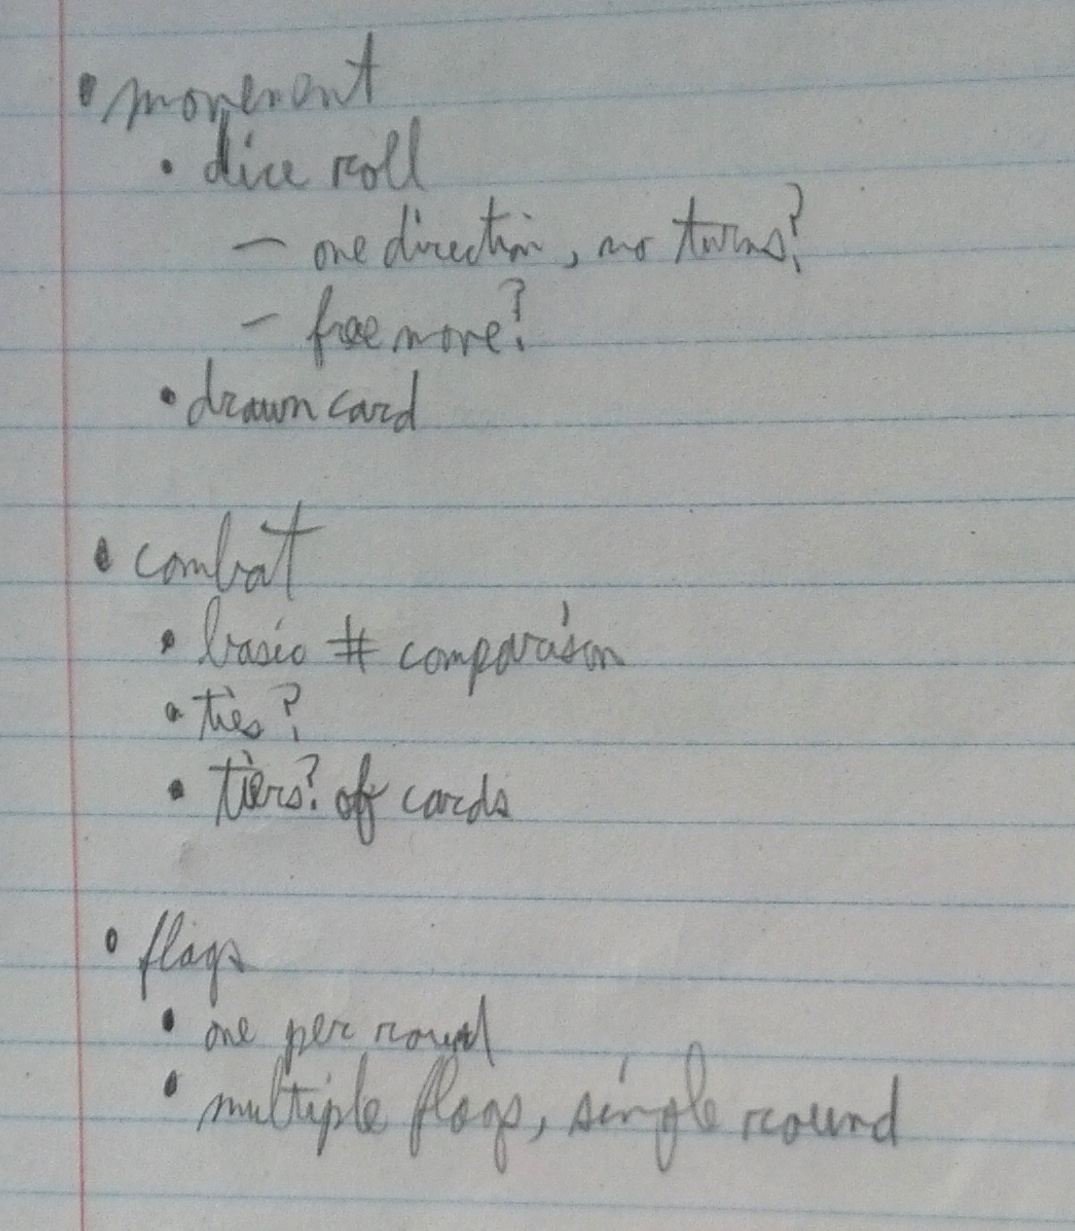 • movement
• dice roll
– one direction, no turns?
– free move?
• drawn card
• combat
• basic # comparison
• ties?
• tiers? of cards
• flags
• one per round
• multiple flags, single round